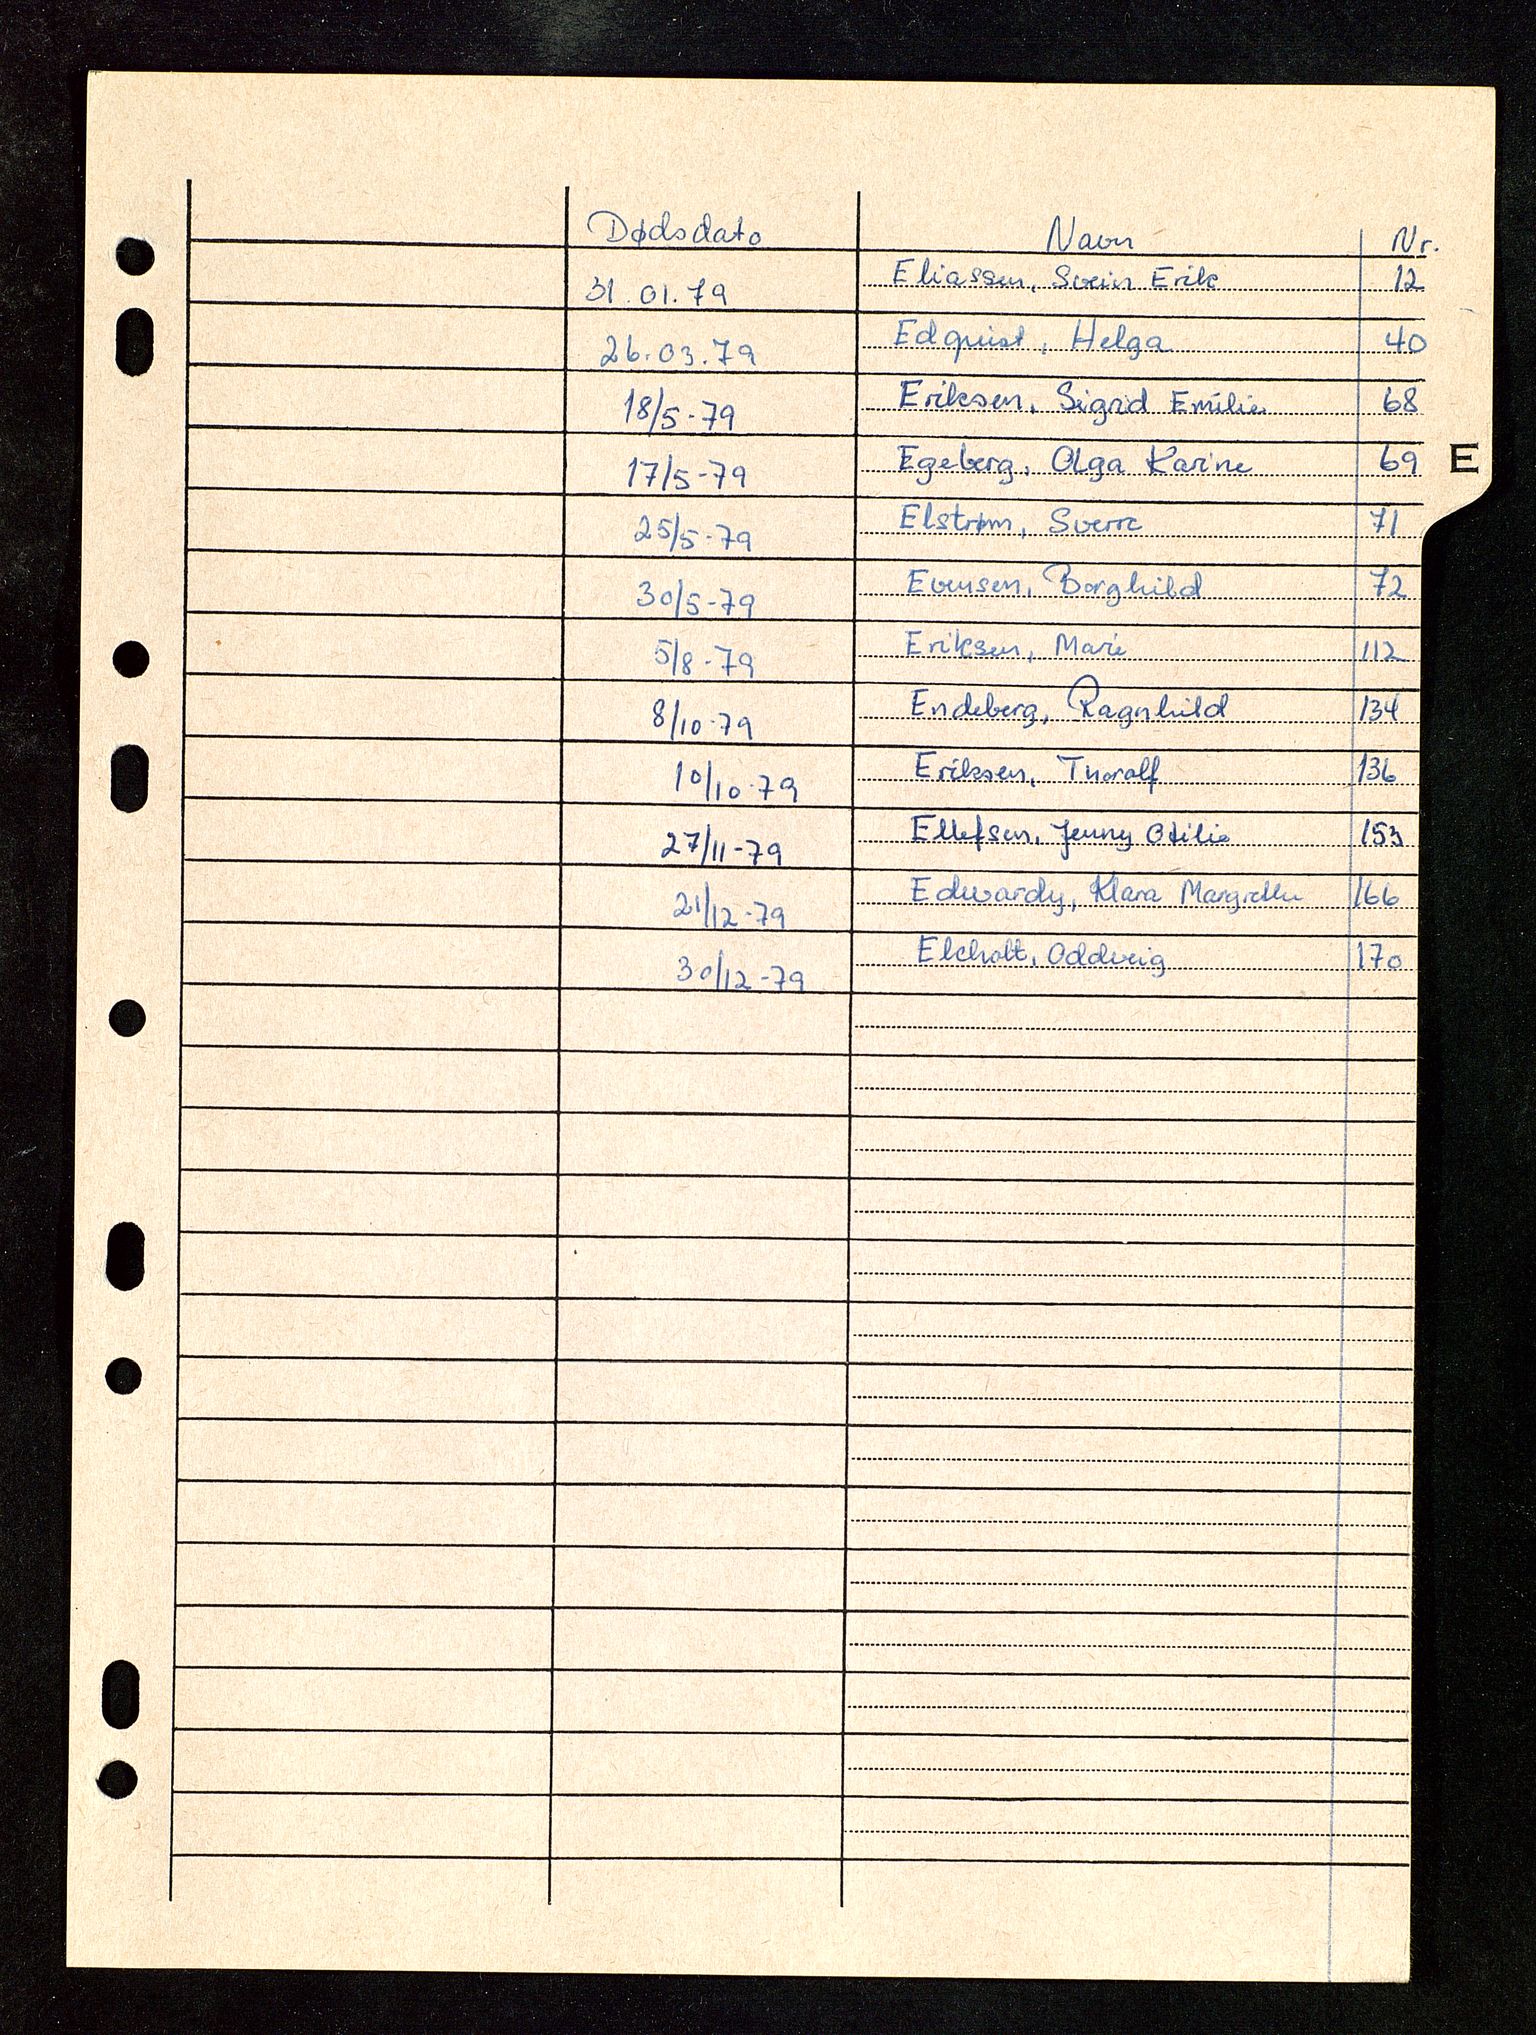 Dødsdato Navn Nr.
31.01.79 Eliassen, Svein Erik 12
26.03.79 Edquist, Helga 40
18/5-79 Eriksen, Sigrid Emilie 68
17/5-79 Egeberg, Olga Karine 69
E
25/5-79 Elstrøm, Sverre 71
30/5-79 Evensen, Borghild 72
5/8-79 Eriksen, Marie 112
8/10-79 Endeberg, Ragnhild 134
10/10-79 Eriksen, Thoralf 136
27/11-79 Ellefsen, Jenny Otilie 153
21/12-79 Edwardy, Klara Margrethe 166
30/12-79 Ekholt, Oddveig 170